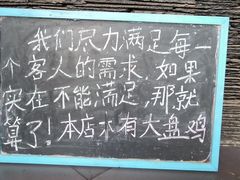 我们尽力满足每一
个客人的需求，如果
实在不能满足，那就
算了！本店木有大盘鸡